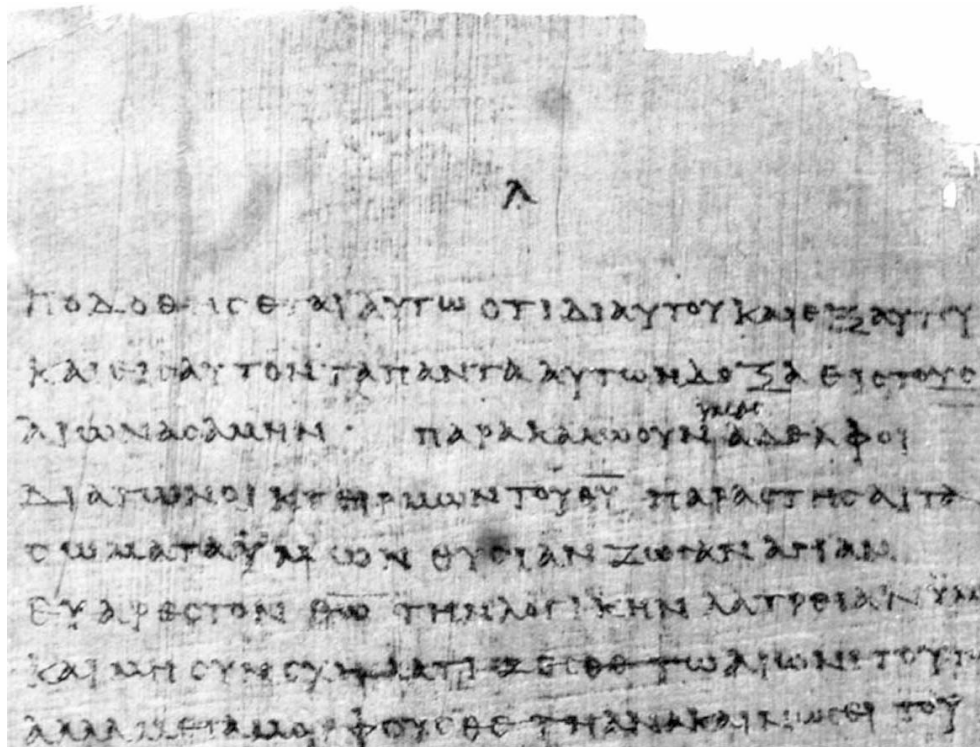 Λ
ΠΟΔΟΘΗϹΕΤΑΙΑΥΤΩΟΤΙΔΙΑΥΤΟΥΚΑΙΕΞΑΥΤΟΥ
ΚΑΙΕΙϹΑΥΤΟΝΤΑΠΑΝΤΑΑΥΤΩΗΔΟΞΑΕΙϹΤΟΥϹ
ΥΜΑϹ
ΑΙΩΝΑϹΑΜΗΝ· ΠΑΡΑΚΑΛΩΟΥΝ ΑΔΕΛΦΟΙ
ΔΙΑΤΩΝΟΙΚΤΕΙΡΜΩΝΤΟΥΘ̅Υ̅ ΠΑΡΑϹΤΗϹΑΙΤΑ
ϹΩΜΑΤΑΫΜΩΝ ΘΥϹΙΑΝ ΖΩϹΑΝ ΑΓΙΑΝ
ΕΥΑΡΕϹΤΟΝ Θ̅Ω̅ ΤΗΝΛΟΓΙΚΗΝ ΛΑΤΡΕΙΑΝΫΜ
ΚΑΙΜΗϹΥΝϹΧΗΜΑΤΙΖΕϹΘΕΤΩΑΙΩΝΙΤΟΥΤ
ΑΛΛΑΜΕΤΑΜΟΡΦΟΥϹΘΕΤΗΑΝΑΚΑΙΝΩϹΕΙΤΟΥ